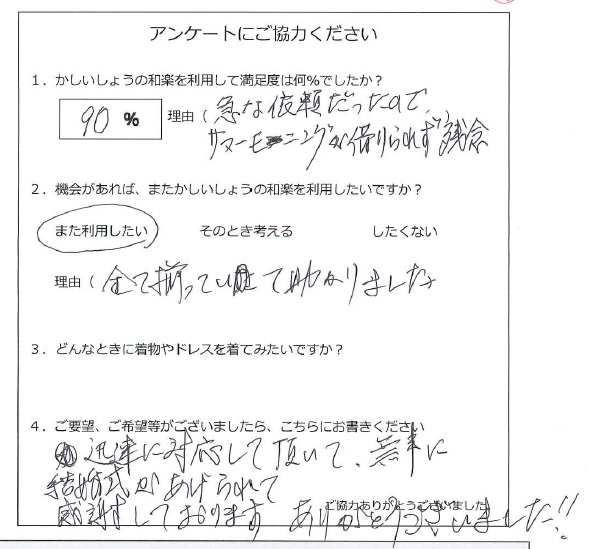 アンケートにご協力ください
1. かしいしょうの和楽を利用して満足度は何%でしたか?
90 % 理由 ( 急な依頼だったので、
サマーモーニングが借りられず残念
2. 機会があれば、またかしいしょうの和楽を利用したいですか?
また利用したい そのとき考える したくない
理由 ( 全て揃っていて助かりました
3. どんなときに着物やドレスを着てみたいですか?
4. ご要望、ご希望等がございましたら、こちらにお書きください
迅速に対応して頂いて、無事に
結婚式があげられて
ご協力ありがとうございました
感謝しております ありがとうございました!!